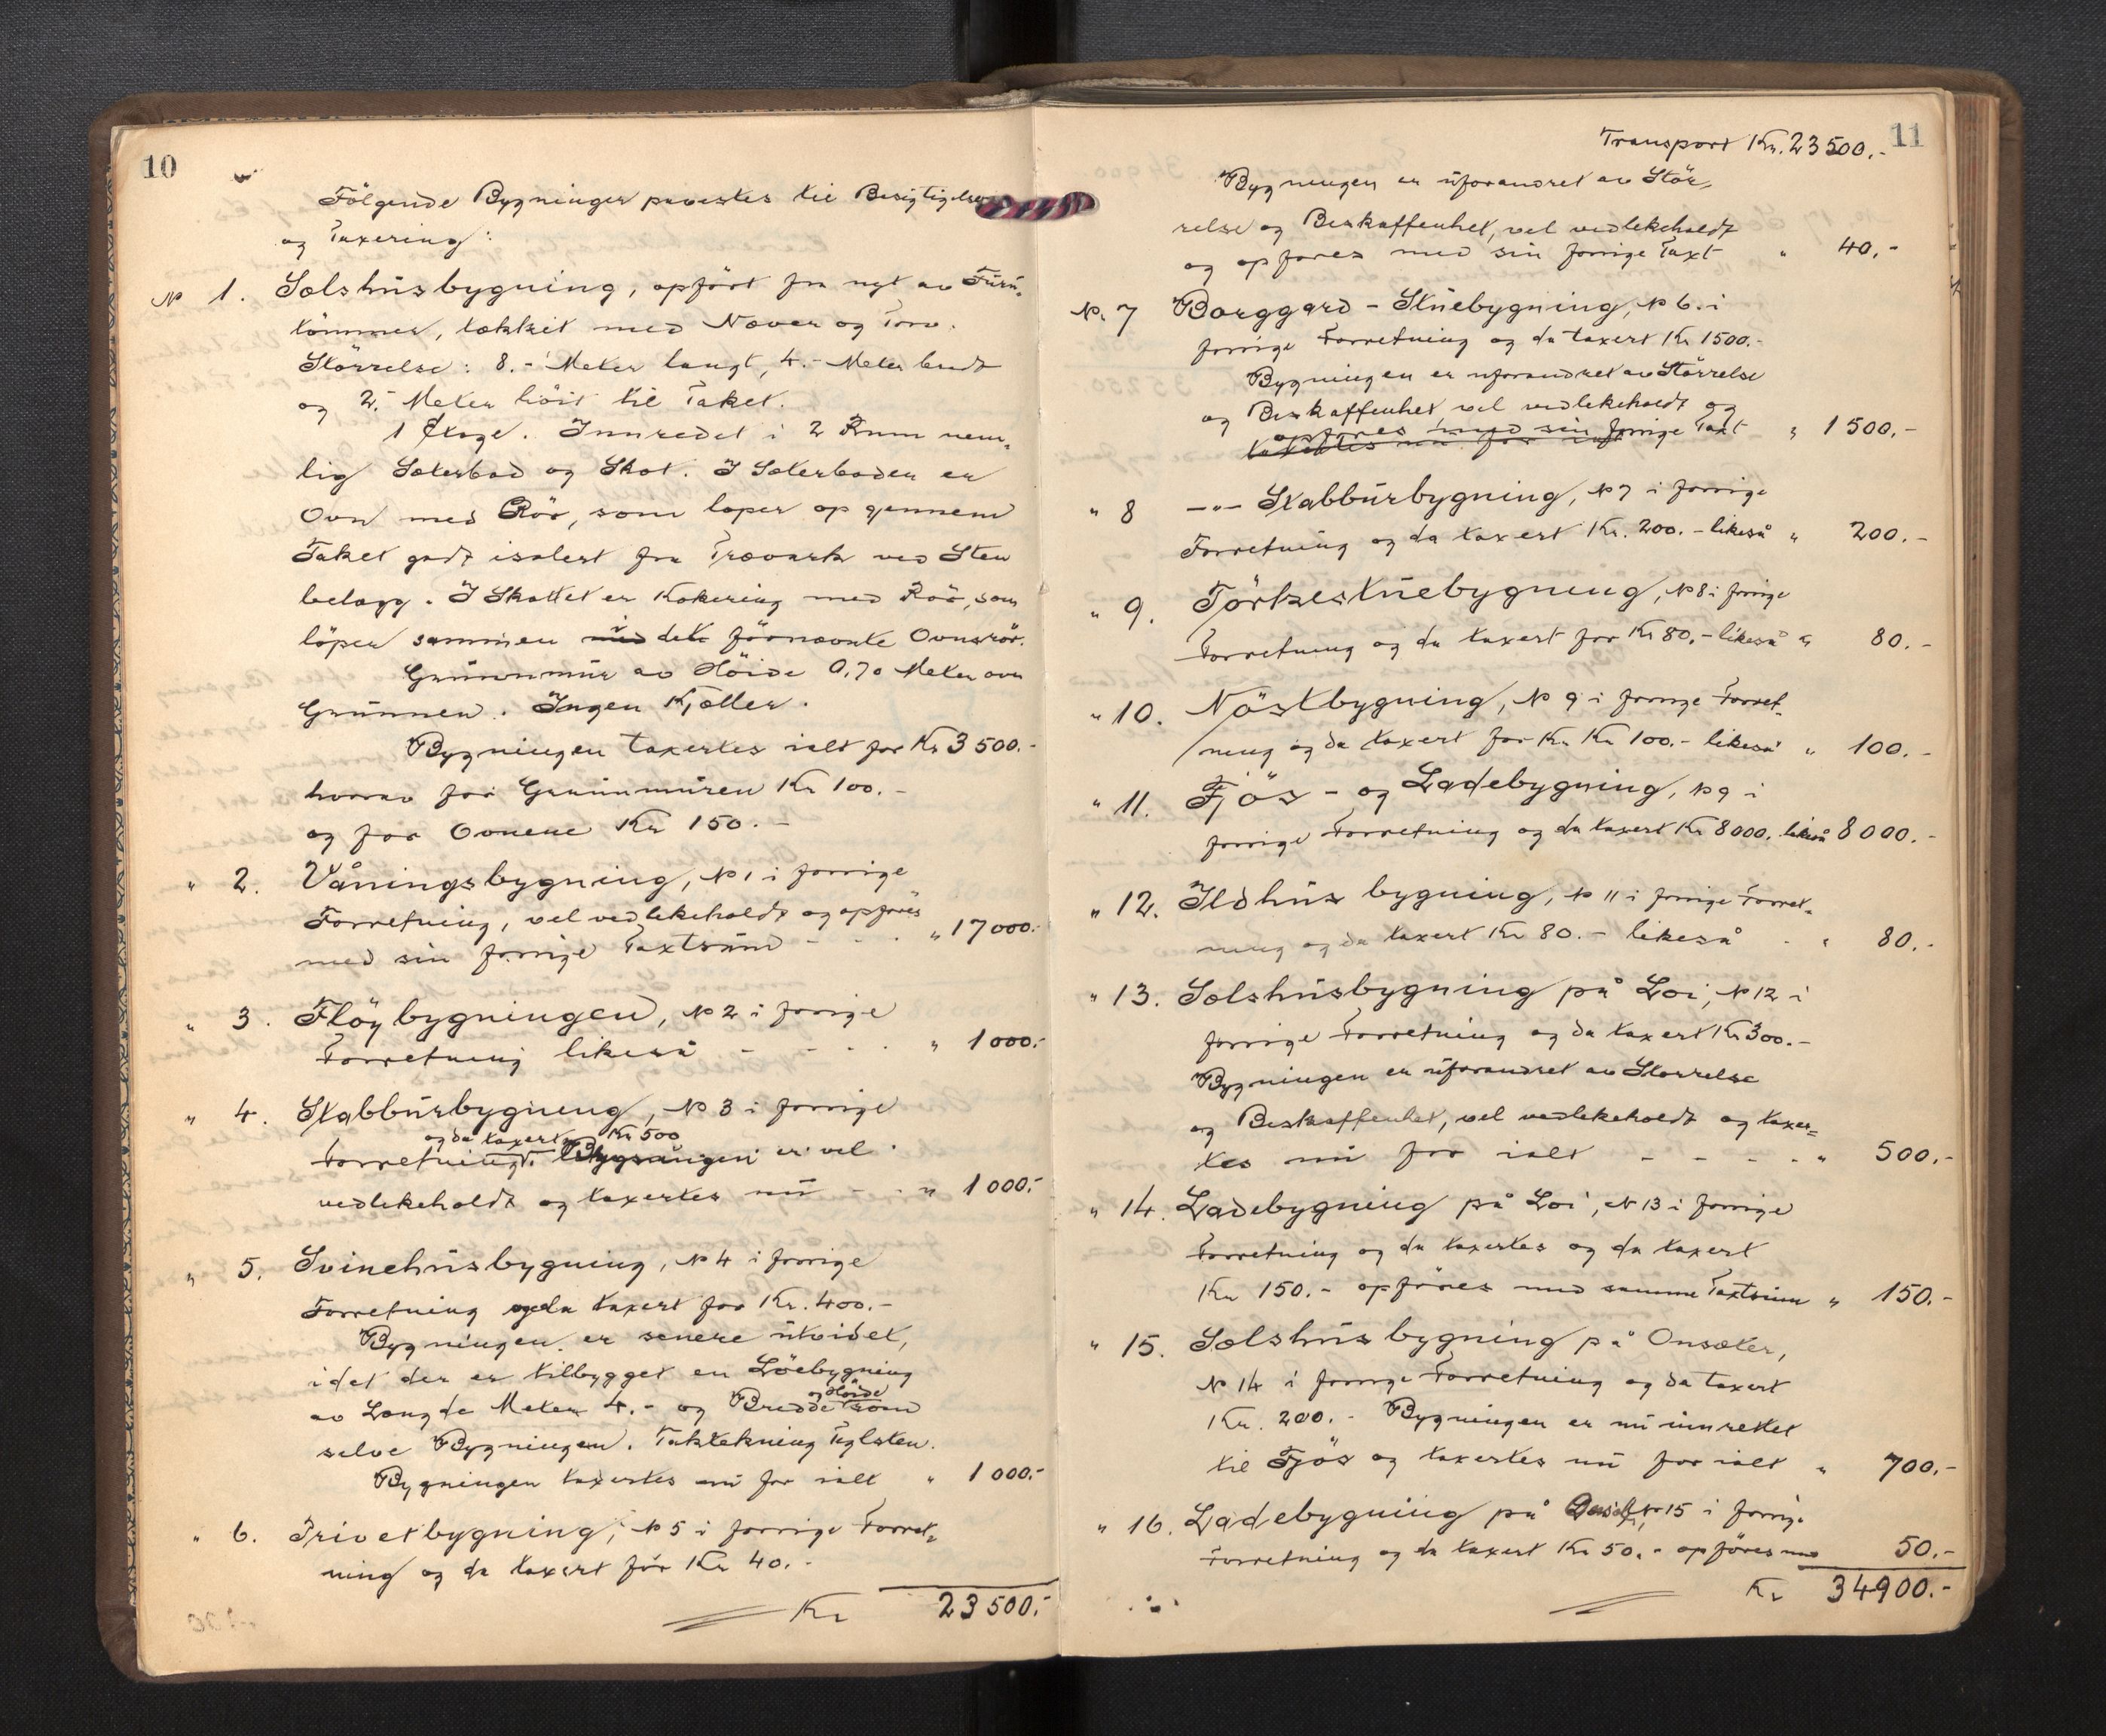 10
Følgende Bygninger paavistes til Besigtigelse
og Taxering:
No 1. Sælshusbygning, opført fra nyt av Furu-
tømmer, tækket med Næver og Torv.
Størrelse: 8.- Meter langt, 4.- Meter bredt
og 2.- Meter høit til Taket.
1 Etage. Innredet i 2 Rum nem-
lig Sæterbod og Skot. I Sæterboden er
Ovn med Rör, som løper op gjennem
Taket godt isolert fra Træværk ved Sten
belægg. I Skottet er Kokering med Rör, som
löper sammen med det förnævnte Ovnsrör.
Grunnmur av Höide 0,70 Meter over
Grunnen. Ingen Kjæller.
Bygningen taxertes ialt for Kr 3 500.-
hvorav for Grunnmuren Kr 100.-
og for Ovnene Kr 150.-
" 2. Våningsbygning, No 1 i forrige
Forretning, vel vedlikeholdt og opføres
med sin forrige Taxtsum - - . " 17 000.-
" 3. Flöybygningen, No 2 i forrige
Forretning likeså - - . . " 1 000.-
" 4. Stabbürbygning, No 3 i forrige
og da taxert Kr 500
Forretning. Bygningen er vel
vedlikeholdt og taxertes nu - - " 1 000.-
" 5. Svinehüsbygning, No 4 i forrige
Forretning og da taxert for Kr. 400.-
Bygningen er senere utvidet,
idet der er tilbygget en Löebygning
og Höide
av Længde Meter 4.- og Bredde som
selve Bygningen. Taktekning Teglsten.
Bygningen taxertes nu for ialt " 1 000.-
" 6. Privetbygning, No 5 i forrige Forret-
ning og da taxert for Kr 40.-
Kr 23 500.-
11
Transport Kr. 23 500.-
Bygningen er uforandret av Stör-
relse og Beskaffenhet, vel vedlikeholdt
og opføres med sin forrige Taxt " 40.-
No. 7 Borggard - Stuebygning, No 6 i
forrige Forretning og da taxert Kr 1500.-
Bygningen er uforandret av Størrelse
og Beskaffenhet vel vedlikeholdt og
opføres med sin forrige Taxt " 1 500.-
taxertes nu for ialt
" 8 -"- Stabbürbygning, No 7 i forrige
Forretning og da taxert Kr. 200.- likeså " 200.-
" 9. Törkestuebygning, No 8 i forrige
Forretning og da taxert for Kr 80.- likeså " 80.-
" 10. Nöstbygning, No 9 i forrige Forret-
ning og da taxert for Kr Kr 100.- likeså " 100.-
" 11. Fjös - og Ladebygning, No 9 i
forrige Forretning og da taxert Kr 8000. likeså 8 000.-
" 12. Ildhus bygning, No 11 i forrige Forret-
ning og da taxert Kr 80.- likeså . " 80.-
" 13. Sælshusbygning på Loi, No 12 i
forrige Forretning og da taxert Kr 300.-
Bygningen er uforandret av Størrelse
og Beskaffenhet, vel vedlikeholdt og taxer-
tes nu for ialt - - - . " 500.-
" 14. Ladebygning på Loi, No 13 i forrige
Forretning og da taxertes og da taxert
Kr 150.- opføres med samme Taxtsum " 150.-
" 15. Sælshus bygning på Onsæter,
No 14 i forrige Forretning og da taxert
Kr. 200.- Bygningen er nu innrettet
til Fjös og taxertes nu for ialt " 700.-
" 16. Ladebygning på No 15 i forrige
Forretning og da taxert Kr 50.- opføres med 50.-
Kr 34900.-